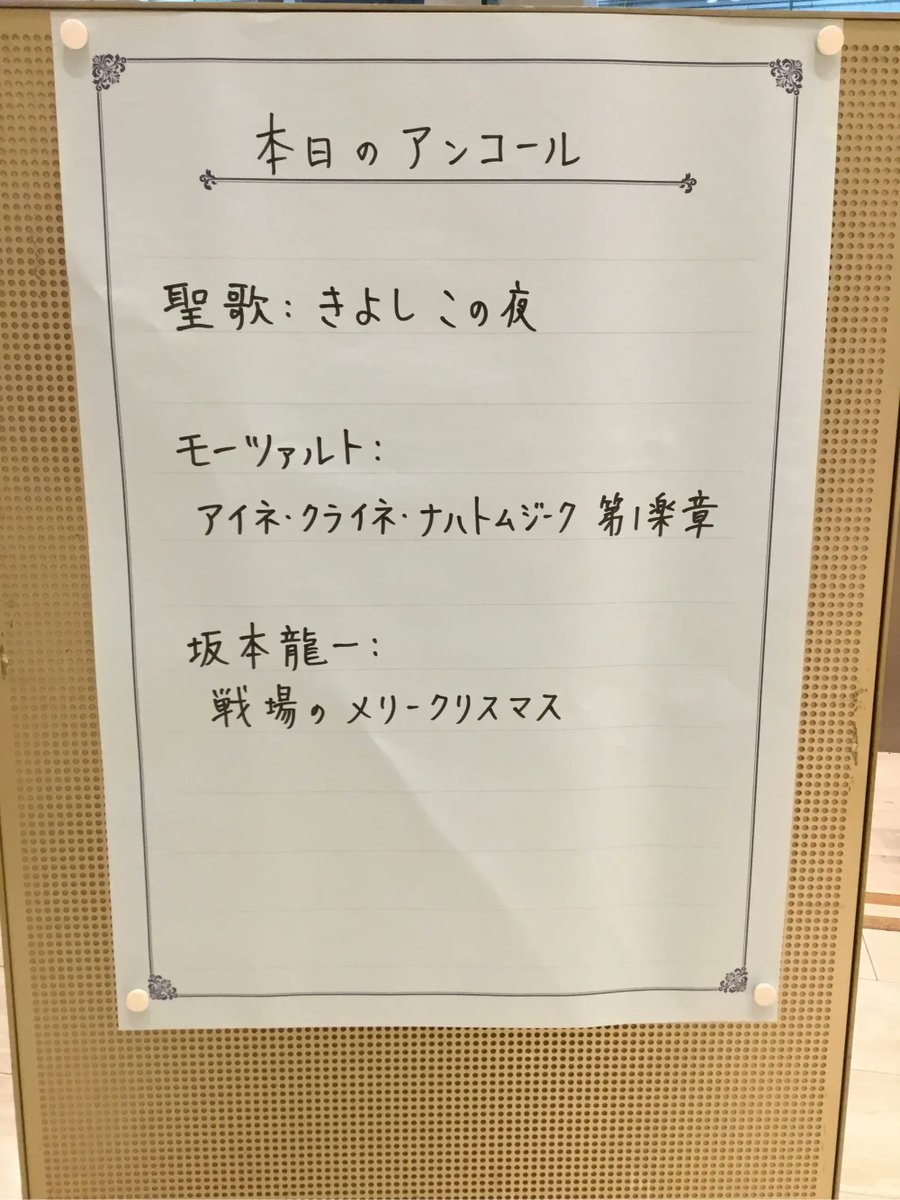 本日のアンコール
聖歌: きよし この夜
モーツァルト:
アイネ・クライネ・ナハトムジーク 第1楽章
坂本龍一:
戦場のメリークリスマス